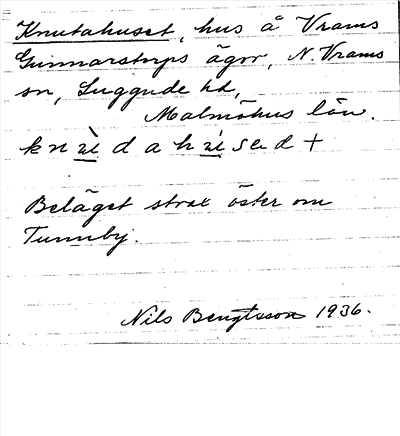 Knutahuset, hus å Vrams
Gunnarstorps ägor, N. Vrams
sn, Luggude hd,
Malmöhus län.
Beläget strax öster om
Tunnby.
Nils Bengtsson 1936.